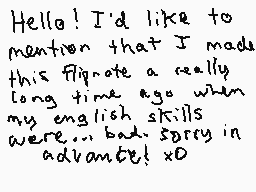 Hello! I'd like to
mention that I made
this flipnote a really
long time ago when
my english skills
were... bad. sorry in
advance! xO